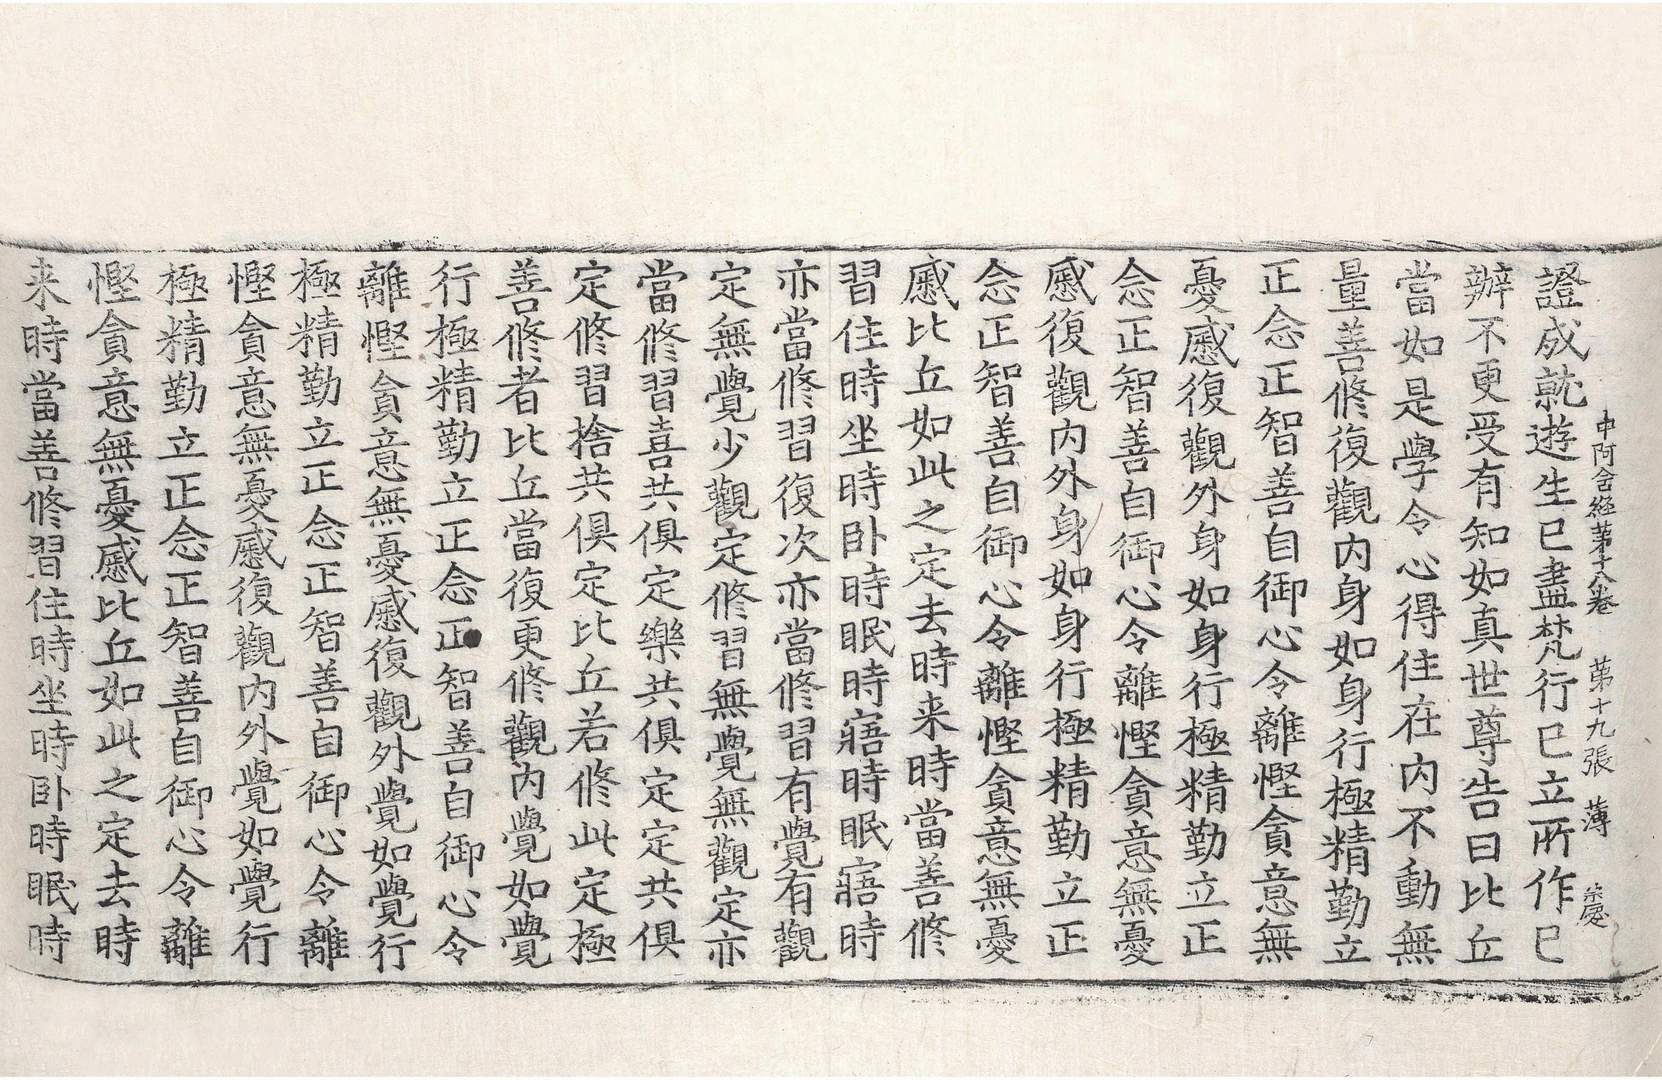 中阿含経苐十八卷 苐十九張 薄
證成就遊生已盡梵行已立所作已
辦不更受有知如真世尊告曰比丘
當如是學令心得住在内不動無
量善修復觀内身如身行極精勤立
正念正智善自御心令離慳貪意無
憂慼復觀外身如身行極精勤立正
念正智善自御心令離慳貪意無憂
慼復觀内外身如身行極精勤立正
念正智善自御心令離慳貪意無憂
慼比丘如此之定去時来時當善修
習住時坐時卧時眠時寤時眠寤時
亦當修習復次亦當修習有覺有觀
定無覺少觀定修習無覺無觀定亦
當修習喜共俱定樂共俱定定共俱
定修習捨共俱定比丘若修此定極
善修者比丘當復更修觀内覺如覺
行極精勤立正念正智善自御心令
離慳貪意無憂慼復觀外覺如覺行
極精勤立正念正智善自御心令離
慳貪意無憂慼復觀内外覺如覺行
極精勤立正念正智善自御心令離
慳貪意無憂慼比丘如此之定去時
来時當善修習住時坐時卧時眠時